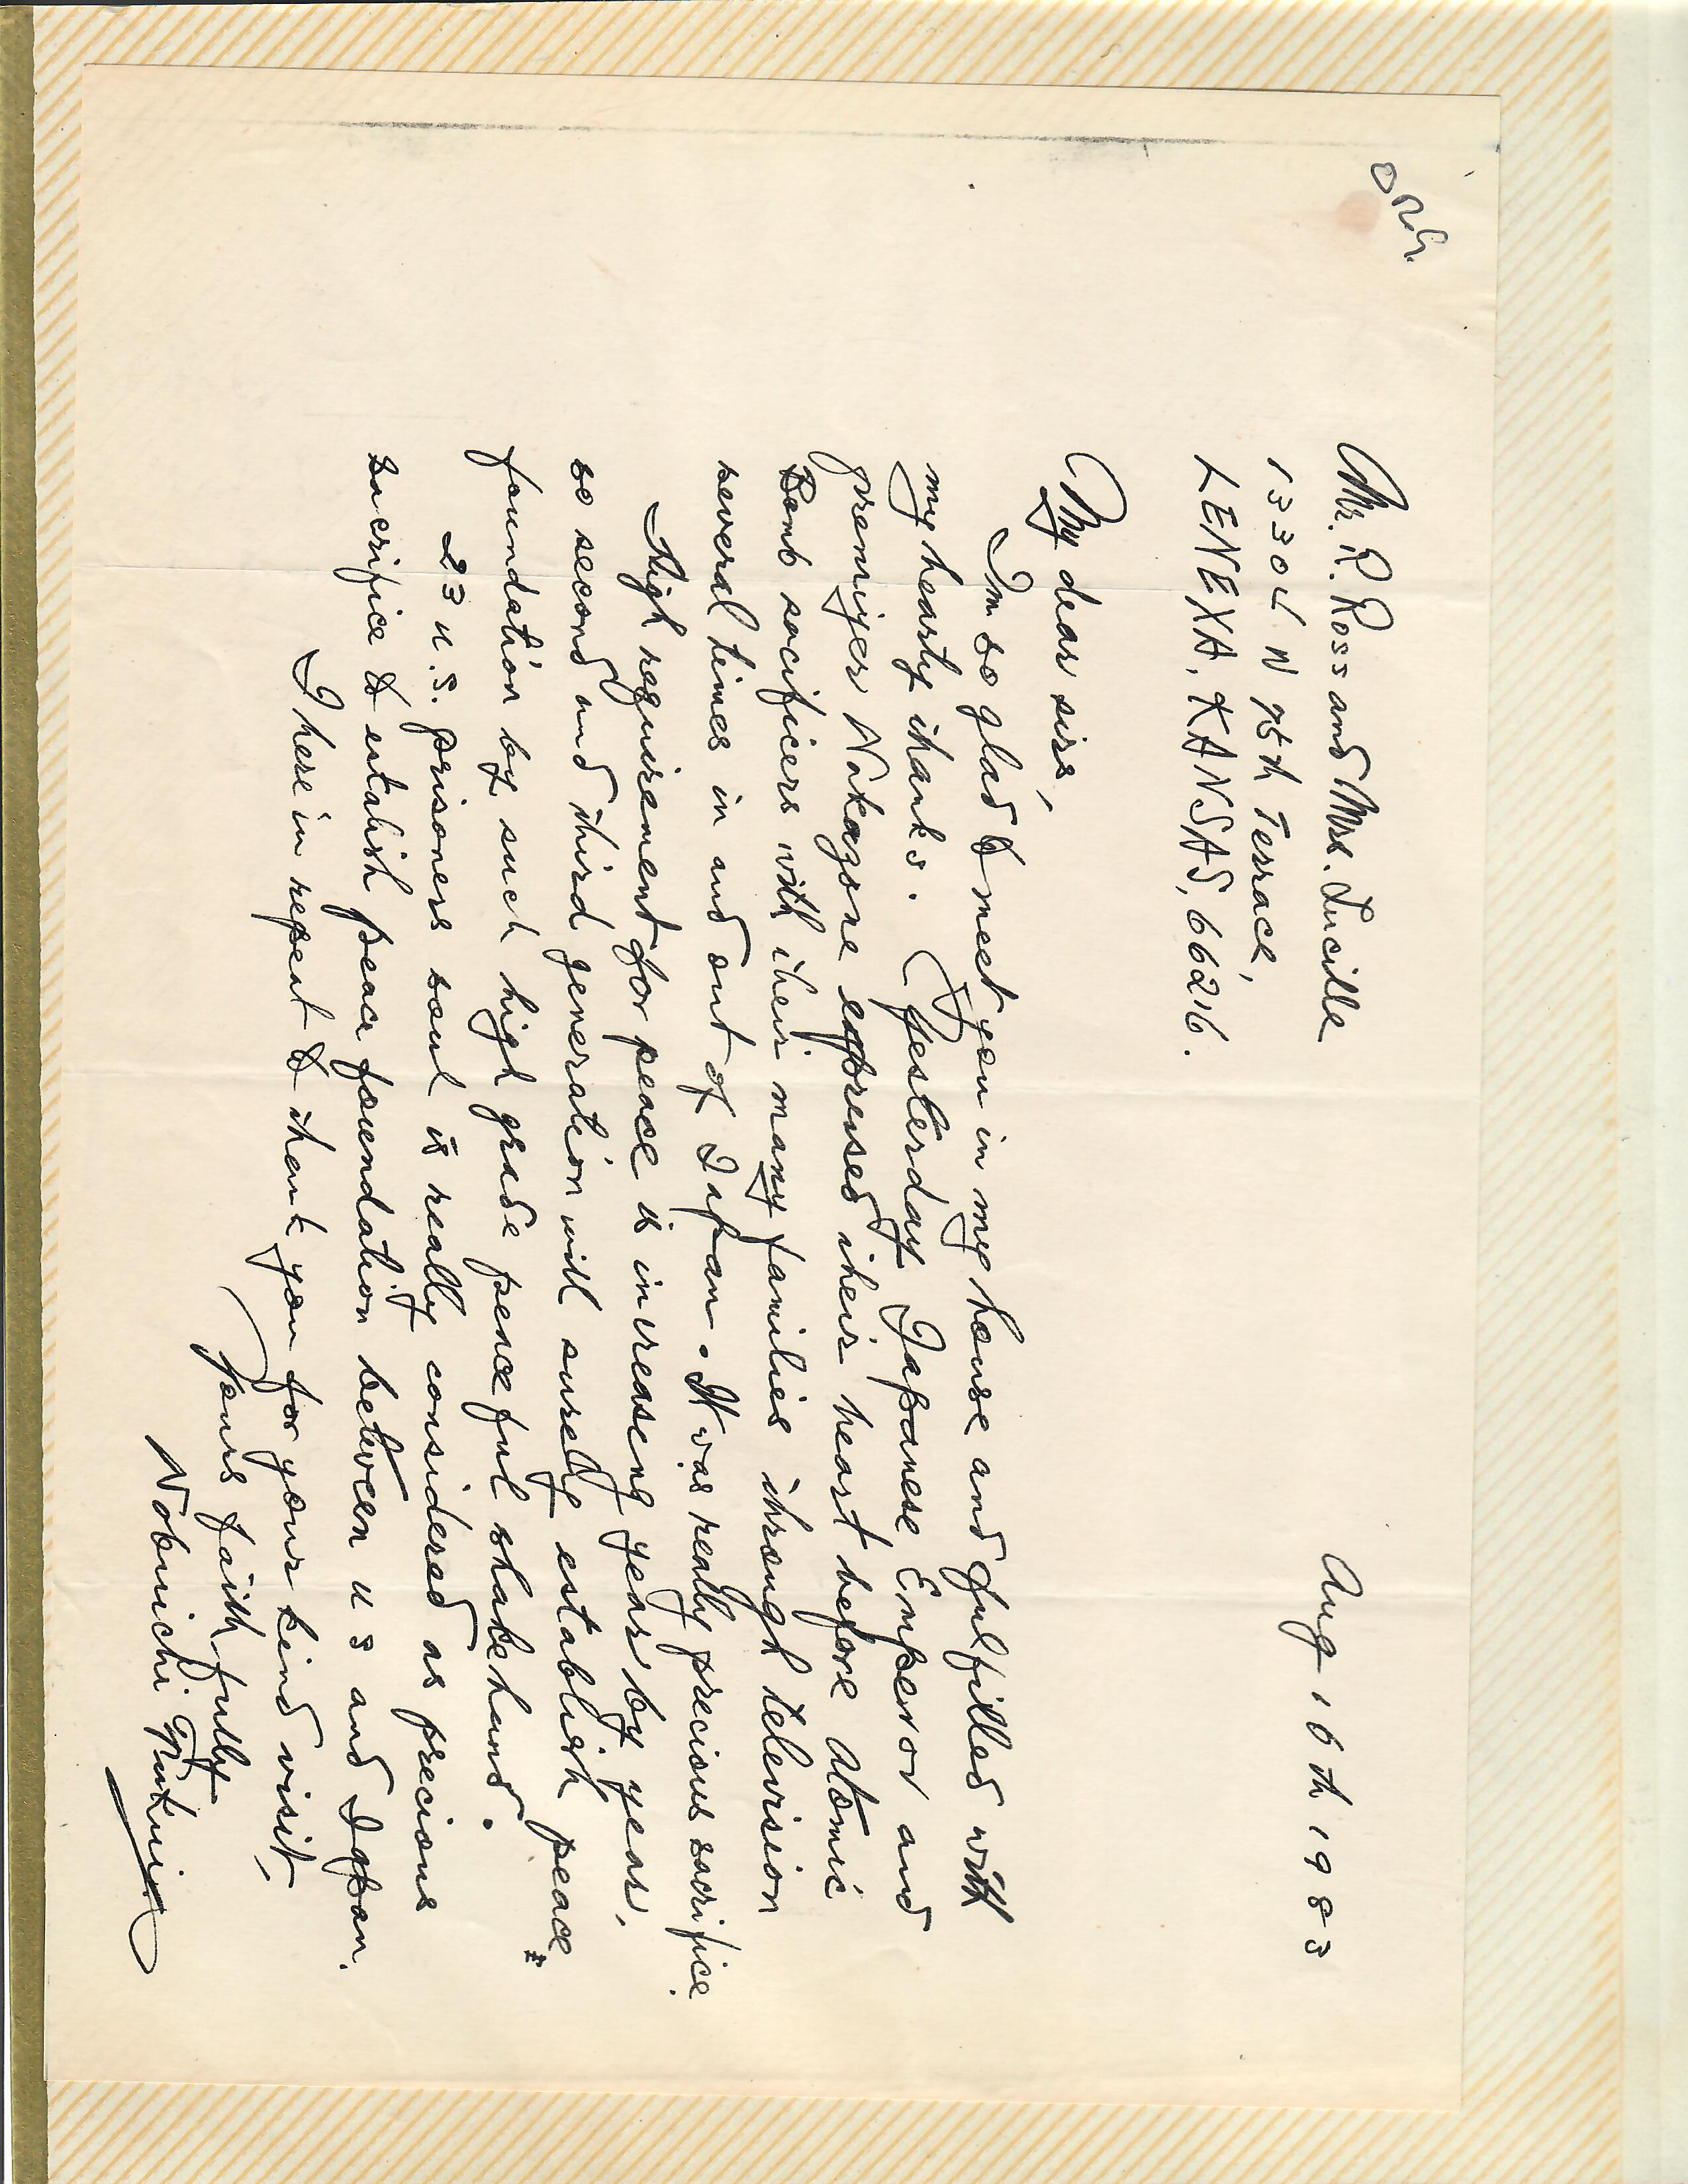 Aug 16th 1983
Mr. R. Ross and Mrs. Lucille
W 75th Terrace,
LENEXA, KANSAS, 66216.
My dear sirs,
I'm so glad to meet you in my house and fulfilled with
my hearty thanks. Yesterday Japanese Emperor and
premiyer Nakazone expressed their heart before atomic
Bomb sacificers with their many families through television
several times in and out of Japan. It was really precious sacrifice.
High requirement for peace is increasing year by year,
so second and third generation will surely establish peace
foundation by such high grade peaceful shakehand.
23 U.S. prisoners soul is really considered as precious
sacrifice to establish peace foundation between US and Japan.
I herein repeat to thank you for your kind visit,
Yours faithfully
Nobuichi